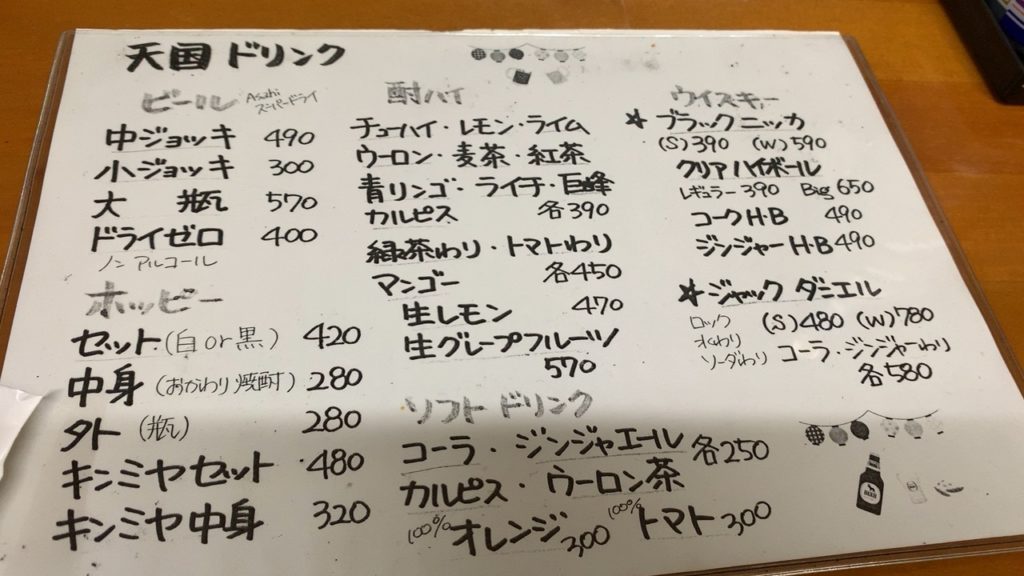 天国 ドリンク
ビール Asahi スーパードライ
中ジョッキ 490
小ジョッキ 300
大 瓶 570
ドライゼロ 400
ノンアルコール
ホッピー
セット(白or黒) 420
中身(おかわり焼酎) 280
外(瓶) 280
キンミヤセット 480
キンミヤ中身 320
酎ハイ
チューハイ・レモン・ライム
ウーロン・麦茶・紅茶
青リンゴ・ライチ・巨峰
カルピス 各390
緑茶わり・トマトわり
マンゴー 各450
生レモン 470
生グレープフルーツ
570
ソフトドリンク
コーラ・ジンジャエール 各250
カルピス・ウーロン茶
100% オレンジ 300 100% トマト 300
ウイスキー
☆ブラックニッカ
(S)390 (W)590
クリアハイボール
レギュラー390 Big 650
コークH・B 490
ジンジャーH・B 490
☆ジャックダニエル
ロック (S)480 (W)780
水わり
ソーダわり コーラ・ジンジャーわり
各580